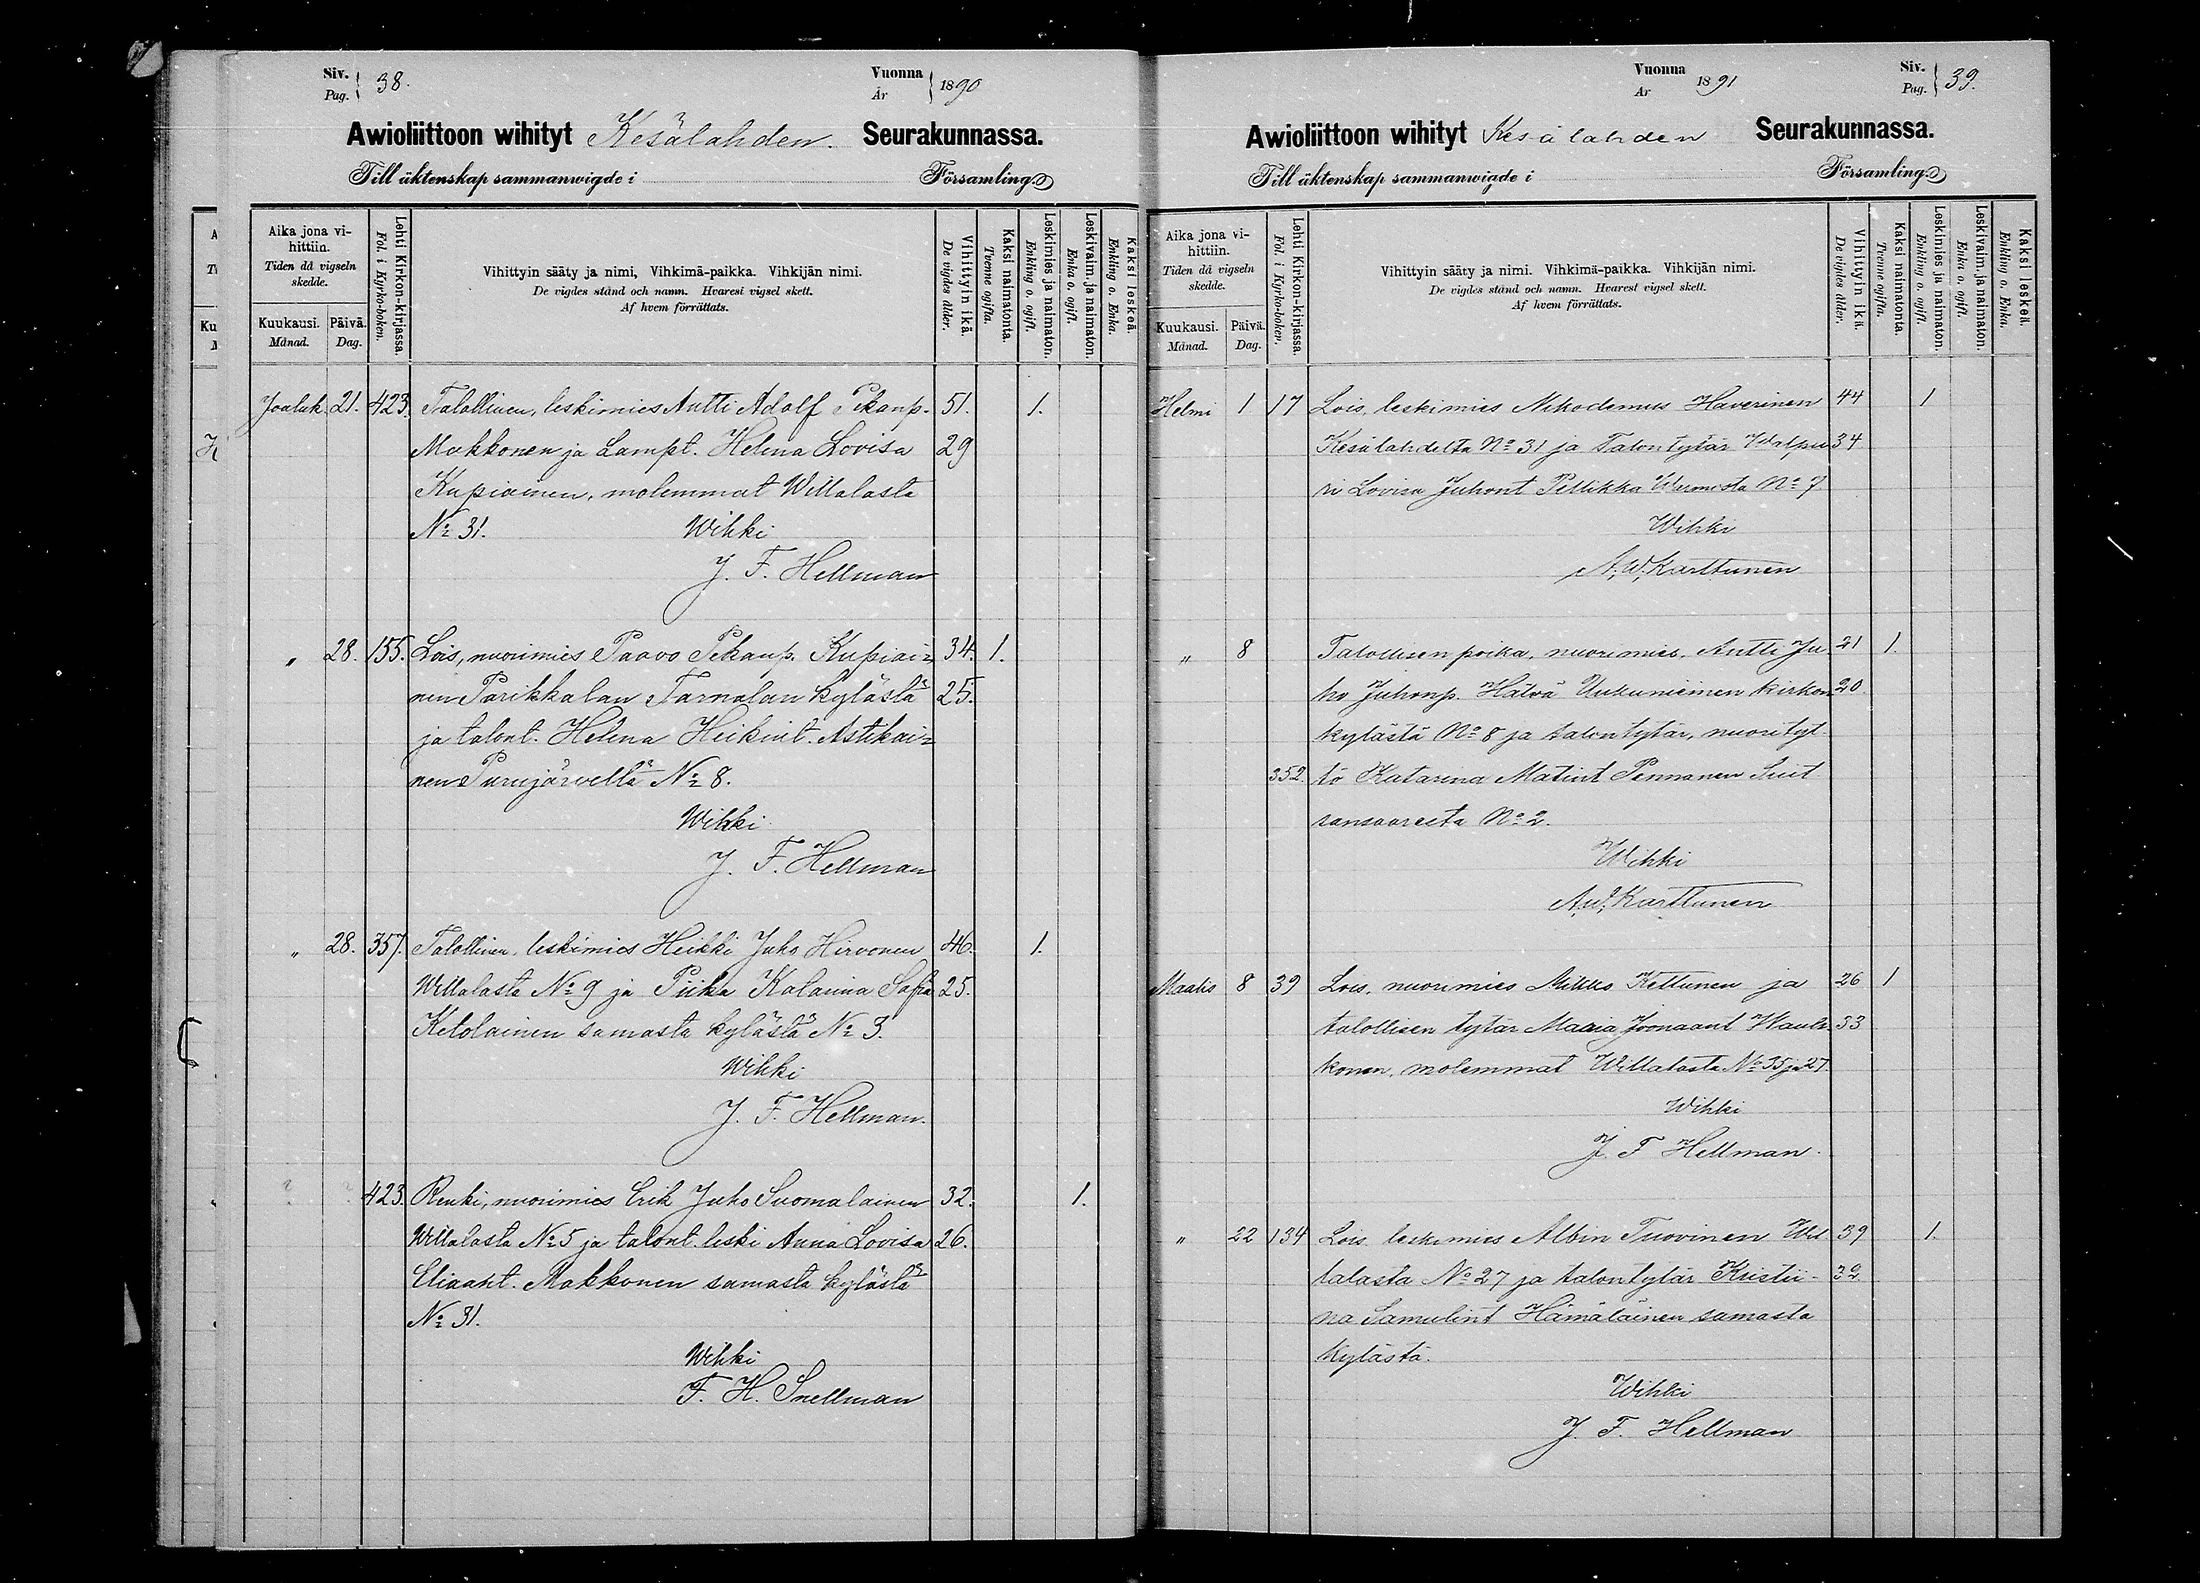 Siv. Pag. 38.
Vuonna År 1890
Awioliittoon wihityt Kesälahden. Seurakunnassa.
Till äktenskap sammanwigde i Församling.
Aika jona vihittiin. Tiden då vigseln skedde.
Kuukausi. Månad.
Päivä. Dag.
Lehti Kirkon-kirjassa. Fol. i Kyrko-boken.
Vihittyin sääty ja nimi, Vihkimä-paikka. Vihkijän nimi.
De vigdes stånd och namn. Hvarest vigsel skett.
Af hvem förrättats.
Vihittyin ikä. De vigdes ålder.
Kaksi naimatonta. Tvenne ogifta.
Leskimies ja naimaton. Enkling o. ogift.
Leskivaim. ja naimaton. Enka o. ogift.
Kaksi leskeä. Enkling o. Enka.
Jouluk. 21. 423. Talollinen, leskimies Antti Adolf Pekanp. 51. 1.
Makkonen ja Lampt. Helena Lovisa 29
Kupiainen, molemmat Willalasta
No 31. Wihki
J. F. Hellman
" 28. 155. Lois, nuorimies Paavo Pekanp. Kupiai- 34. 1.
nen Parikkalan Tarnalan kylästä 25.
ja talont. Helena Heikint. Astikai-
nen Purujärveltä No 8.
Wihki
J. F. Hellman
" 28. 357. Talollinen, leskimies Heikki Juho Hirvonen 46. 1.
Willalasta No 9 ja Piika Katarina Sofia 25.
Ketolainen samasta kylästä No 3.
Wihki
J. F. Hellman.
? ? 423. Renki, nuorimies Erik Juho Suomalainen 32. 1.
Willalasta No 5 ja talont. leski Anna Lovisa 26.
Eliaant. Makkonen samasta kylästä
No 31.
Wihki
F. H. Snellman
Vuonna År 1891
Siv. Pag. 39.
Awioliittoon wihityt Kesälahden Seurakunnassa.
Till äktenskap sammanwigde i Församling.
Aika jona vihittiin. Tiden då vigseln skedde.
Kuukausi. Månad.
Päivä. Dag.
Lehti Kirkon-kirjassa. Fol. i Kyrko-boken.
Vihittyin sääty ja nimi. Vihkimä-paikka. Vihkijän nimi.
De vigdes stånd och namn. Hvarest vigsel skett.
Af hvem förrättats.
Vihittyin ikä. De vigdes ålder.
Kaksi naimatonta. Tvenne ogifta.
Leskimies ja naimaton. Enkling o. ogift.
Leskivaim. ja naimaton. Enka o. ogift.
Kaksi leskeä. Enkling o. Enka.
Helmi 1 17 Lois, leskimies Nikodemus Haverinen 44 1
Kesälahdelta No 31 ja Talontytär Walpu 34
ri Lovisa Juhont Pellikka No 7
Wihki
A. W. Karttunen
" 8 Talollisen poika, nuorimies, Antti Ju 21 1.
ho Juhonp. Hälvä Uukuniemen kirkon 20
kylästä No 8 ja talontytär, nuorityt
352. tö Katarina Matint Pennanen Suit
sansaaresta No 2.
Wihki
A. W. Karttunen
Maalis 8 39 Lois, nuorimies Mikko Kettunen ja 26 1
talollisen tytär Maria Joonaant Wauh 33
konen, molemmat Willalasta No 35 ja 27.
Wihki
J. F Hellman.
" 22 134 Lois leskimies Albin Tuovinen Wil 39 1.
lalasta No 27 ja talontytär Kristii- 32
na Samulint Hämäläinen samasta
kylästä.
Wihki
J. F. Hellman